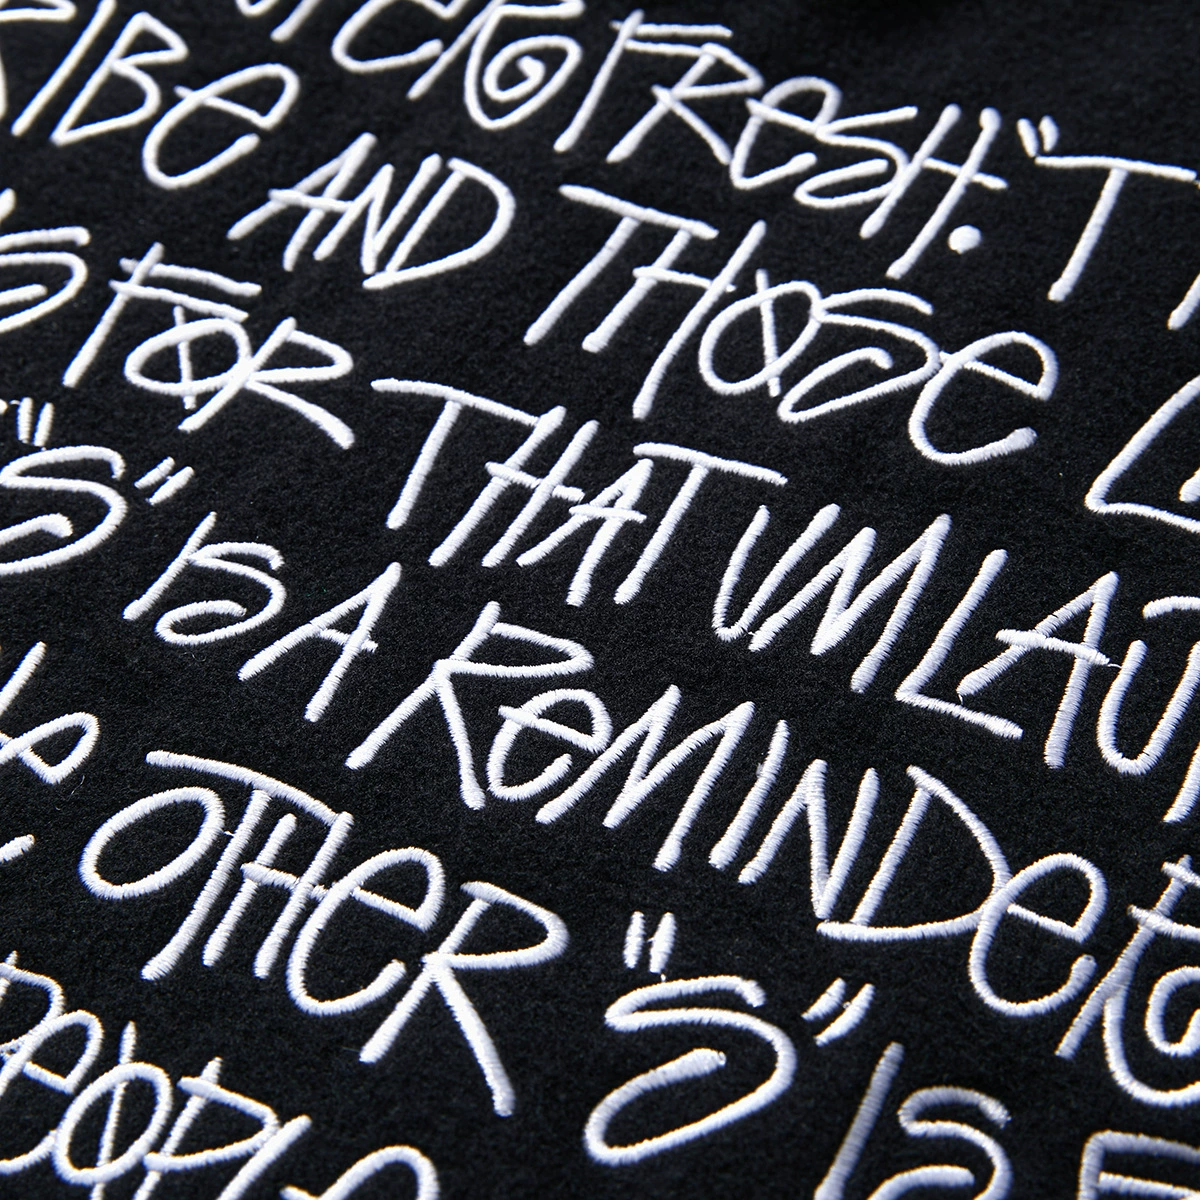 FRESH." T
IBE AND THOSE
S FOR THAT UMLAU
"S" IS A REMINDER
OTHER "S" IS
PEOPLE